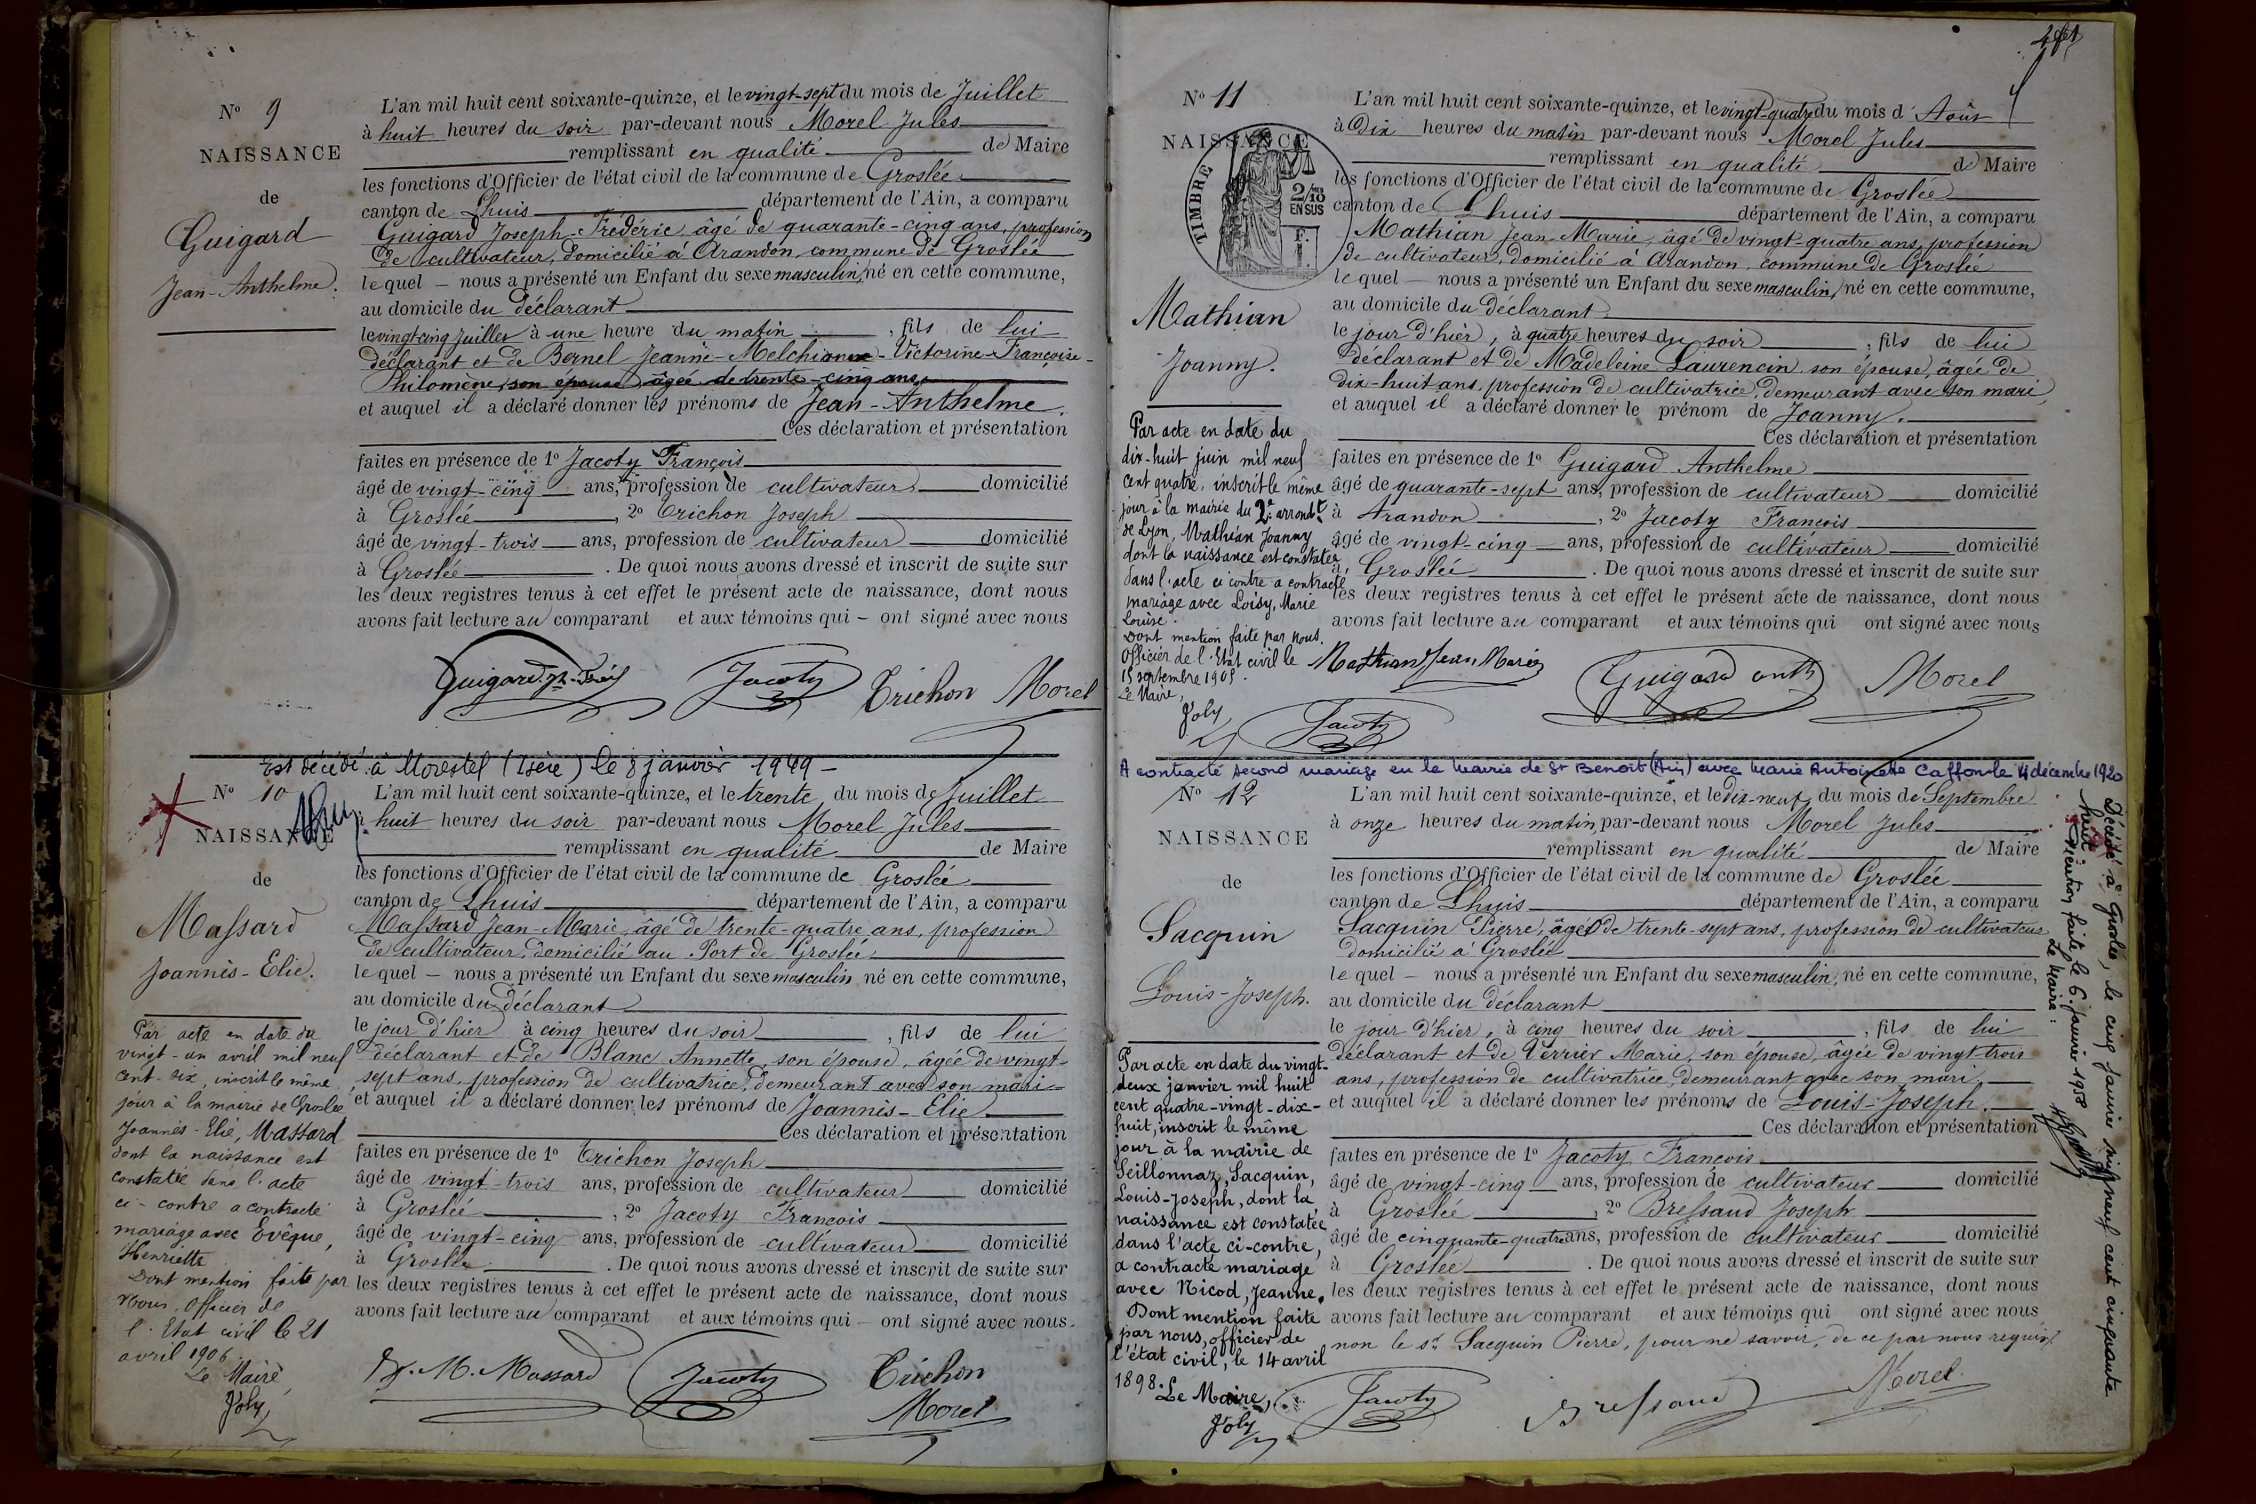 N° 9
NAISSANCE
de
Guigard
Jean-Anthelme.
L'an mil huit cent soixante-quinze, et le vingt-sept du mois de Juillet
à huit heures du soir par-devant nous Morel Jules
remplissant en qualité de Maire
les fonctions d'Officier de l'état civil de la commune de Groslée
canton de Lhuis département de l'Ain, a comparu
Guigard Joseph-Frédéric âgé de quarante-cinq ans, profession
de cultivateur, domicilié à Arandon commune de Groslée
le quel — nous a présenté un Enfant du sexe masculin, né en cette commune,
au domicile du déclarant
le vingt-cinq juillet à une heure du matin, fils de lui
déclarant et de Bernel Jeanne-Melchionne-Victorine-Françoise-
Philomène, son épouse âgée de trente-cinq ans,
et auquel il a déclaré donner les prénoms de Jean-Anthelme.
Ces déclaration et présentation
faites en présence de 1° Jacoty François
âgé de vingt-cinq ans, profession de cultivateur domicilié
à Groslée, 2° Trichon Joseph
âgé de vingt-trois ans, profession de cultivateur domicilié
à Groslée. De quoi nous avons dressé et inscrit de suite sur
les deux registres tenus à cet effet le présent acte de naissance, dont nous
avons fait lecture au comparant et aux témoins qui – ont signé avec nous
Jacoty Trichon Morel
Est décédé à Morestel (Isère) le 8 janvier 1949 –
N° 10
NAISSANCE
de
Massard
Joannès-Elie.
Par acte en date du
vingt-un avril mil neuf
cent-six, inscrit le même
jour à la mairie de Groslée
Joannès-Elie, Massard
dont la naissance est
constatée dans l'acte
ci-contre a contracté
mariage avec Evêque,
Henriette
Dont mention faite par
Nous, officier de
l'Etat civil le 21
avril 1906.
Le Maire,
Joly
L'an mil huit cent soixante-quinze, et le trente du mois de Juillet
à huit heures du soir par-devant nous Morel Jules
remplissant en qualité de Maire
les fonctions d'Officier de l'état civil de la commune de Groslée
canton de Lhuis département de l'Ain, a comparu
Massard Jean-Marie, âgé de trente-quatre ans, profession
de cultivateur, domicilié au Port de Groslée,
le quel – nous a présenté un Enfant du sexe masculin né en cette commune,
au domicile du déclarant
le jour d'hier à cinq heures du soir, fils de lui
déclarant et de Blanc Annette, son épouse, âgée de vingt-
sept ans, profession de cultivatrice, demeurant avec son mari
et auquel il a déclaré donner les prénoms de Joannès-Elie
Ces déclaration et présentation
faites en présence de 1° Trichon Joseph
âgé de vingt-trois ans, profession de cultivateur domicilié
à Groslée, 2° Jacoty François
âgé de vingt-cinq ans, profession de cultivateur domicilié
à Groslée. De quoi nous avons dressé et inscrit de suite sur
les deux registres tenus à cet effet le présent acte de naissance, dont nous
avons fait lecture au comparant et aux témoins qui – ont signé avec nous.
J. M. Massard Jacoty Trichon
Morel
N° 11
NAISSANCE
TIMBRE
2/10
EN SUS
Mathian
Joanny.
Par acte en date du
dix-huit juin mil neuf
cent quatre, inscrit le même
jour à la mairie du 2e arrondt
de Lyon, Mathian Joanny
dont la naissance est constatée
dans l'acte ci contre a contracté
mariage avec Loisy, Marie
Louise.
Dont mention faite par Nous
Officier de l'Etat civil le
15 septembre 1905.
Le Maire,
Joly
L'an mil huit cent soixante-quinze, et le vingt-quatre du mois d'Août
à Dix heures du matin par-devant nous Morel Jules
remplissant en qualité de Maire
les fonctions d'Officier de l'état civil de la commune de Groslée
canton de Lhuis département de l'Ain, a comparu
Mathian Jean-Marie, âgé de vingt-quatre ans, profession
de cultivateur, domicilié à Arandon, commune de Groslée
le quel — nous a présenté un Enfant du sexe masculin, né en cette commune,
au domicile du déclarant
le jour d'hier, à quatre heures du soir, fils de lui
déclarant et de Madeleine Laurencin, son épouse, âgée de
dix-huit ans, profession de cultivatrice, demeurant avec son mari,
et auquel il a déclaré donner le prénom de Joanny.
Ces déclaration et présentation
faites en présence de 1° Guigard Anthelme
âgé de quarante-sept ans, profession de cultivateur domicilié
à Arandon, 2° Jacoty François
âgé de vingt-cinq ans, profession de cultivateur domicilié
à Groslée. De quoi nous avons dressé et inscrit de suite sur
les deux registres tenus à cet effet le présent acte de naissance, dont nous
avons fait lecture au comparant et aux témoins qui ont signé avec nous
Mathian Jean Marie Guigard anth Morel
Jacoty
A contracté second mariage en la mairie de St Benoit (Ain) avec Marie Antoinette Caffon le 4 décembre 1920
N° 12
NAISSANCE
de
Sacquin
Louis-Joseph.
Par acte en date du vingt-
deux janvier mil huit
cent quatre-vingt-dix-
huit, inscrit le même
jour à la mairie de
Seillonnaz, Sacquin,
Louis-Joseph, dont la
naissance est constatée
dans l'acte ci-contre,
a contracté mariage
avec Nicod, Jeanne.
Dont mention faite
par nous, officier de
l'état civil, le 14 avril
1898. Le Maire,
Joly
L'an mil huit cent soixante-quinze, et le Dix-neuf du mois de Septembre
à onze heures du matin, par-devant nous Morel Jules
remplissant en qualité de Maire
les fonctions d'Officier de l'état civil de la commune de Groslée
canton de Lhuis département de l'Ain, a comparu
Sacquin Pierre, âgé de trente-sept ans, profession de cultivateur
domicilié à Groslée
le quel – nous a présenté un Enfant du sexe masculin, né en cette commune,
au domicile du déclarant
le jour d'hier, à cinq heures du soir, fils de lui
déclarant et de Verrier Marie, son épouse, âgée de vingt-trois
ans, profession de cultivatrice, demeurant avec son mari,
et auquel il a déclaré donner les prénoms de Louis-Joseph.
Ces déclaration et présentation
faites en présence de 1° Jacoty François
âgé de vingt-cinq ans, profession de cultivateur domicilié
à Groslée, 2° Bressaud Joseph
âgé de cinquante-quatre ans, profession de cultivateur domicilié
à Groslée. De quoi nous avons dressé et inscrit de suite sur
les deux registres tenus à cet effet le présent acte de naissance, dont nous
avons fait lecture au comparant et aux témoins qui ont signé avec nous
non le sr Sacquin Pierre, pour ne savoir, de ce par nous requis.
Jacoty Bressaud Morel
Décédé à Groslée, le cinq janvier mil neuf cent cinquante
huit. Mention faite le 6 janvier 1958
Le Maire: